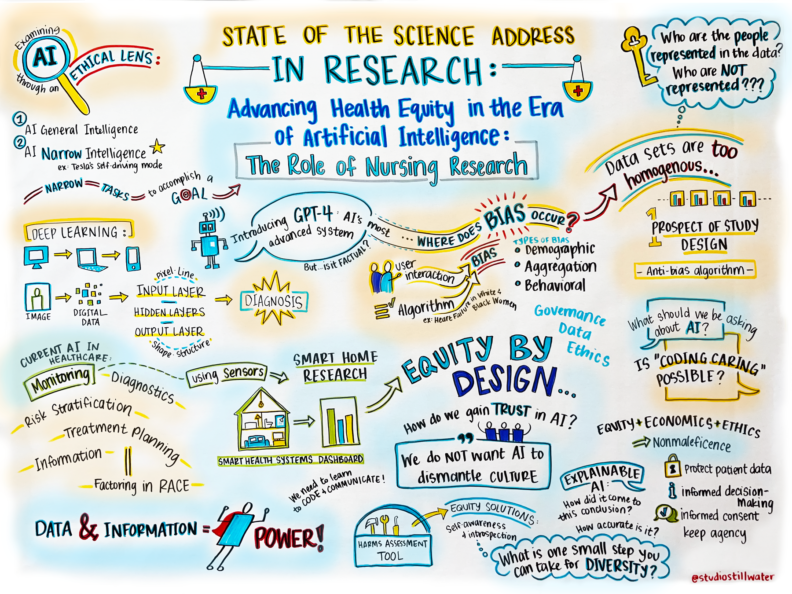 Examining
AI
through an
ETHICAL LENS:
STATE OF THE SCIENCE ADDRESS
IN RESEARCH:
Advancing Health Equity in the Era
of Artificial Intelligence:
The Role of Nursing Research
Who are the people
represented in the data?
Who are NOT
represented???
① AI General Intelligence
② AI Narrow Intelligence
ex: Tesla's Self-driving mode
NARROW TASKS to accomplish a
GOAL
Introducing GPT-4 AI's most
advanced system
But...is it FACTUAL?
... WHERE DOES BIAS OCCUR?
Data sets are too
homogenous...
DEEP LEARNING:
IMAGE
DIGITAL
DATA
Pixel-Line
INPUT LAYER
HIDDEN LAYERS
OUTPUT LAYER
Shape structure
DIAGNOSIS
user
interaction
BIAS
Algorithm
ex: Heart Failure in White &
Black Women
TYPES OF BIAS
• Demographic
• Aggregation
• Behavioral
Governance
Data
Ethics
PROSPECT OF STUDY
DESIGN
- Anti-bias algorithm -
What should we be asking
about AI?
IS "CODING CARING"
POSSIBLE?
CURRENT AI IN
HEALTHCARE:
Monitoring
Diagnostics
Risk Stratification
Treatment Planning
Information
Factoring in RACE
using Sensors
SMART HOME
RESEARCH
SMART HEALTH SYSTEMS DASHBOARD
EQUITY BY
DESIGN...
How do we gain TRUST in AI?
We do NOT want AI to
dismantle CULTURE
EQUITY + ECONOMICS + ETHICS
Nonmaleficence
Protect patient data
informed decision-
making
informed consent
keep agency
EXPLAINABLE
AI:
How did it come to
this conclusion?
How accurate is it?
We need to learn
to CODE & COMMUNICATE!
DATA & INFORMATION =
POWER!
HARMS ASSESSMENT
TOOL
EQUITY SOLUTIONS:
Self-awareness
+ introspection
What is one small step you
can take for DIVERSITY?
@studiostillwater